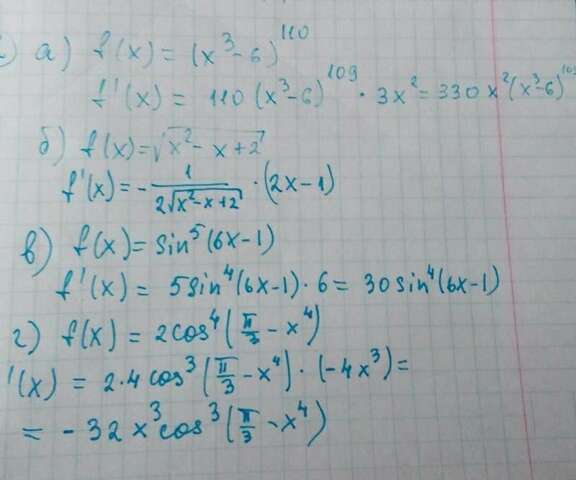 а) f(x) = (x³-6)¹¹⁰
f'(x) = 110(x³-6)¹⁰⁹ · 3x² = 330x²(x³-6)¹⁰⁹
б) f(x)=√(x²-x+2)
f'(x)=-1/(2√(x²-x+2)) · (2x-1)
в) f(x)=sin⁵(6x-1)
f'(x) = 5sin⁴(6x-1)·6 = 30sin⁴(6x-1)
г) f(x) = 2cos⁴(π/3 - x⁴)
'(x) = 2·4cos³(π/3 - x⁴)·(-4x³)=
= -32x³cos³(π/3 - x⁴)